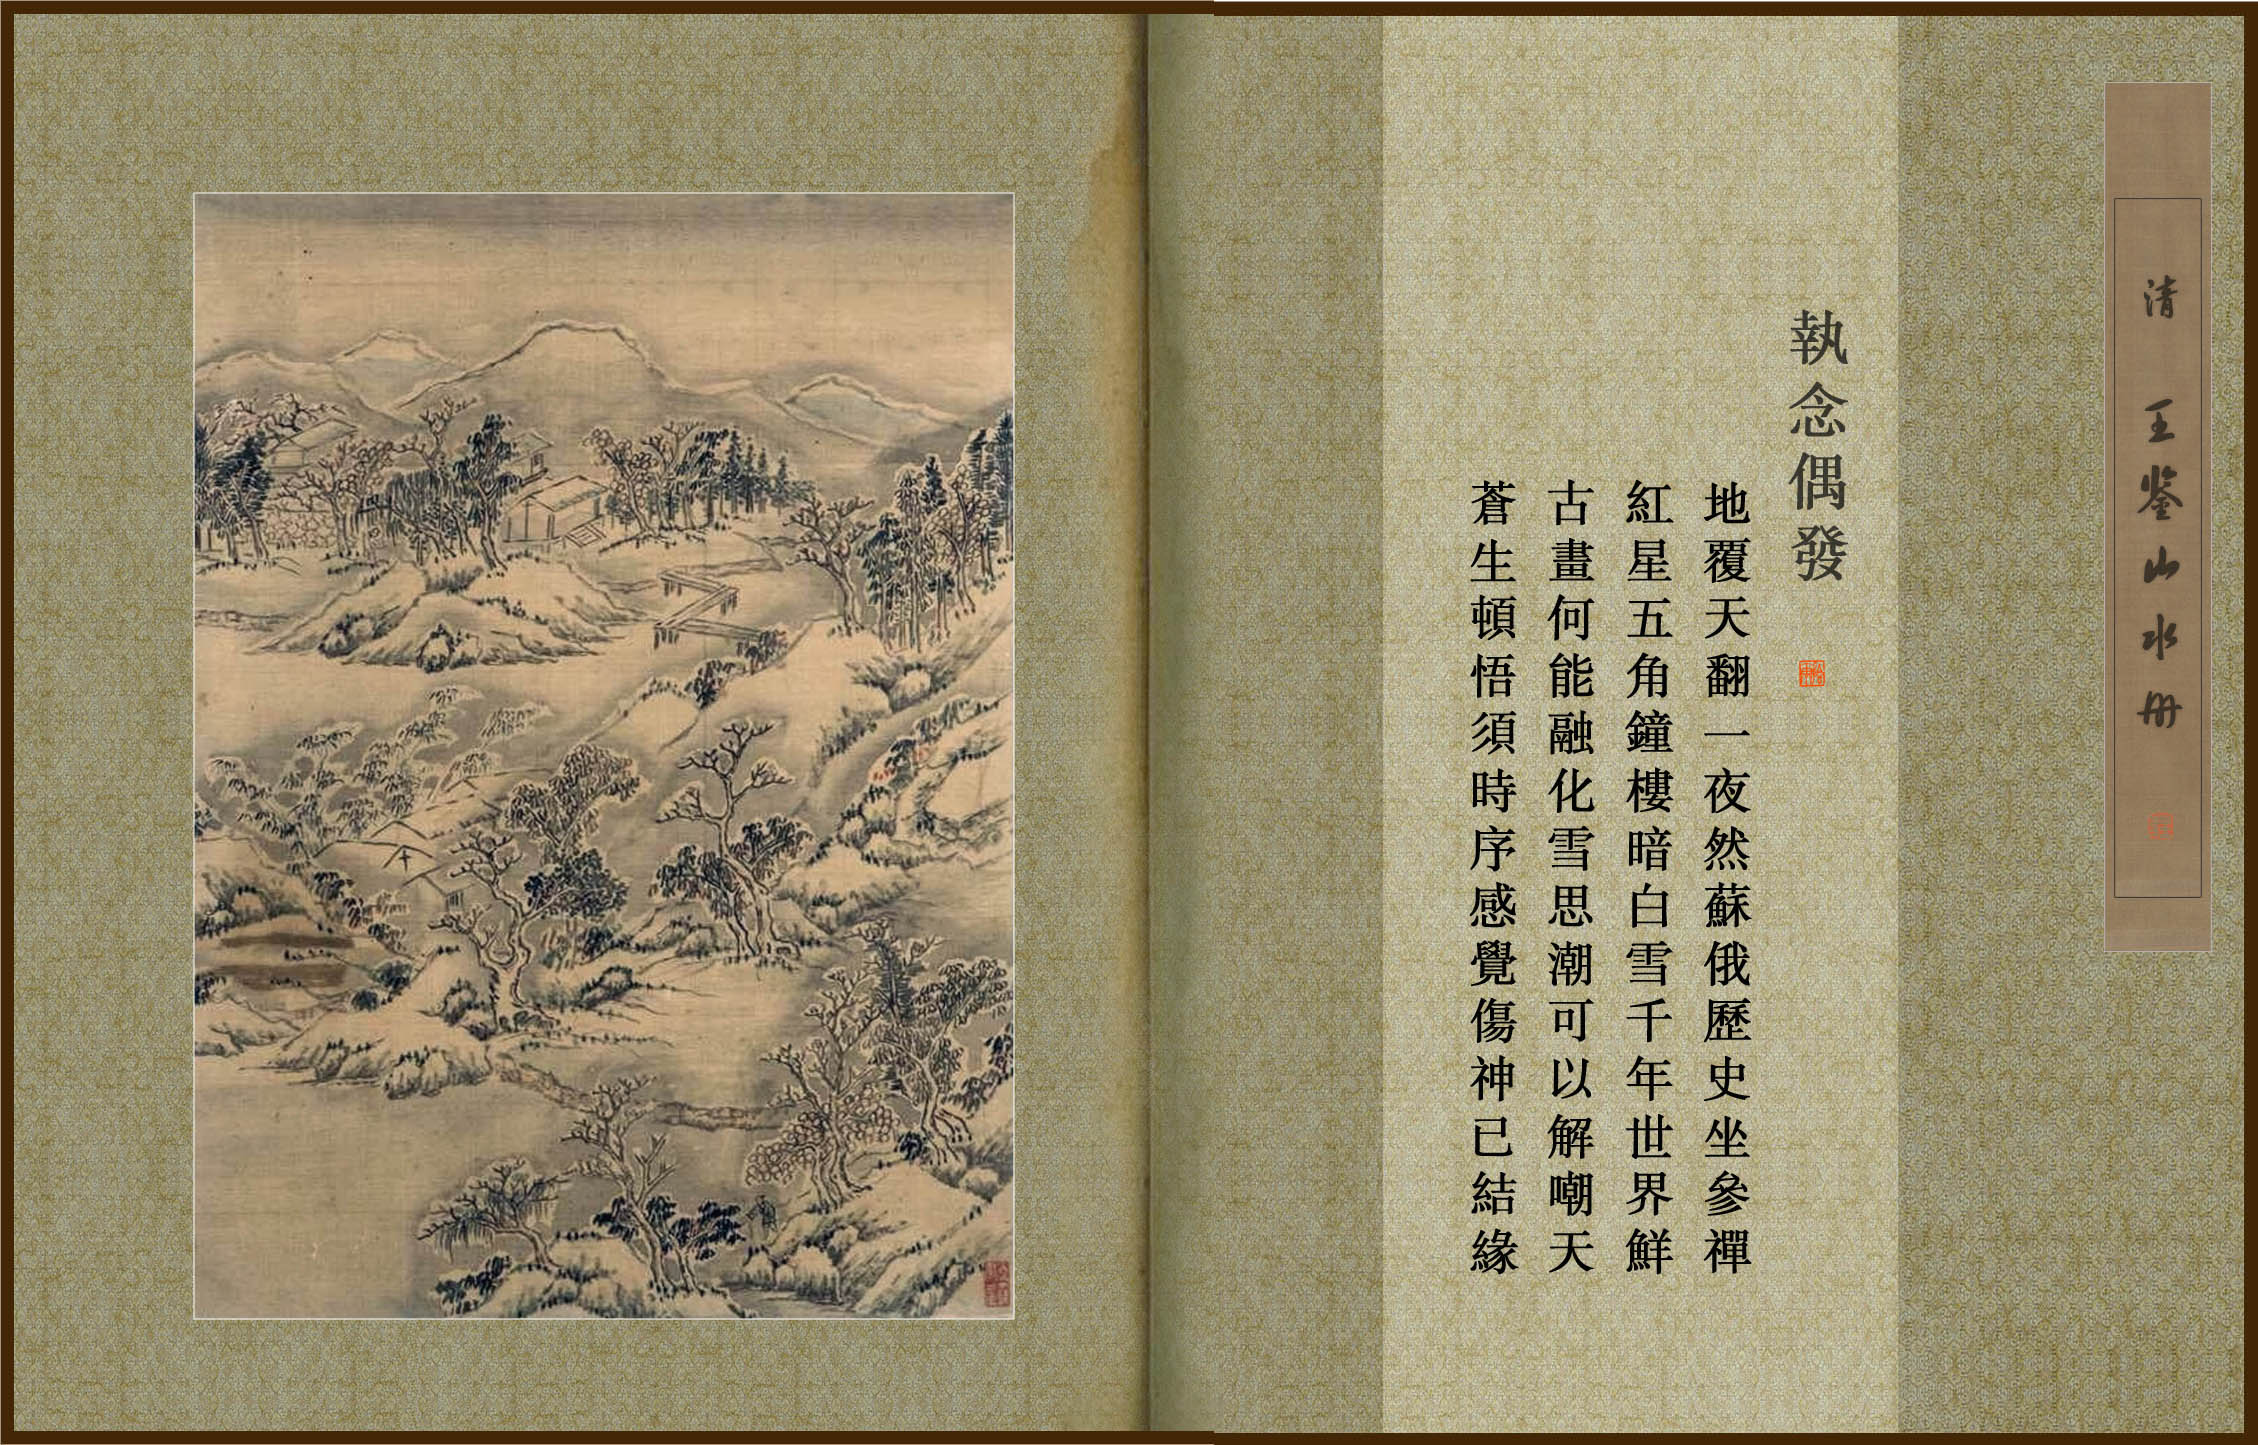 清 王鉴山水册
執念偶發
地覆天翻一夜然蘇俄歷史坐參禪
紅星五角鐘樓暗白雪千年世界鮮
古畫何能融化雪思潮可以解嘲天
蒼生頓悟須時序感覺傷神已結緣